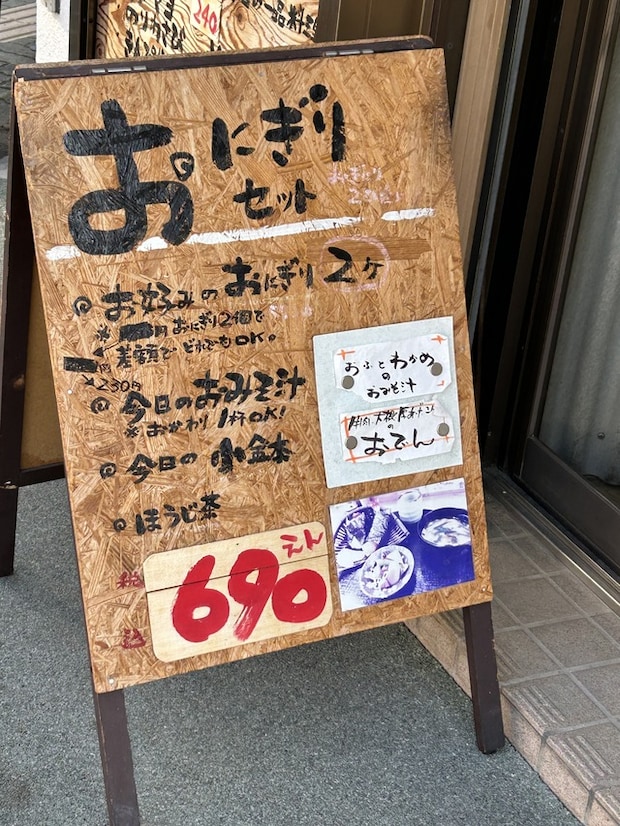 240
おにぎり
セット
お好みのおにぎり2ヶ
おにぎり2個で
差額でどれでもOK。
230円
今日のおみそ汁
※おかわり1杯OK!
今日の小鉢
ほうじ茶
税込
690えん
おふとわかめ
の
おみそ汁
の
おでん